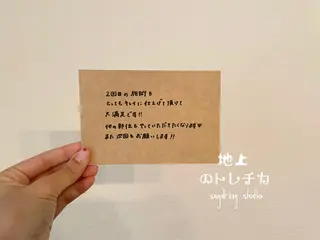 2回目の施術も
とってもキレイに仕上げて頂けて
大満足です!!
他の部位もやっていただきたくなります
また次回もお願いします!!
地上
のトレチカ